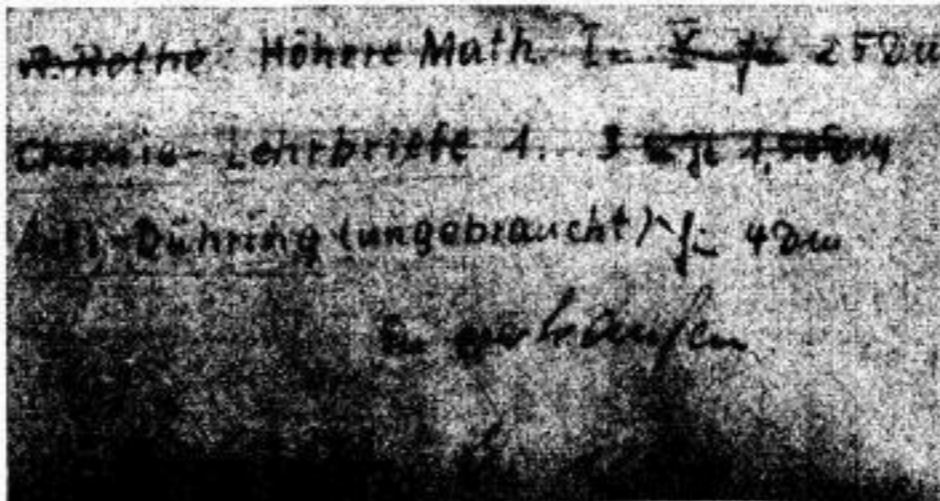 R. Rothe Höhere Math. I - V für 25 DM
Chemie-Lehrbriefe 1 ... 3 je
Anti-Dühring (ungebraucht) f. 4 DM
zu verkaufen